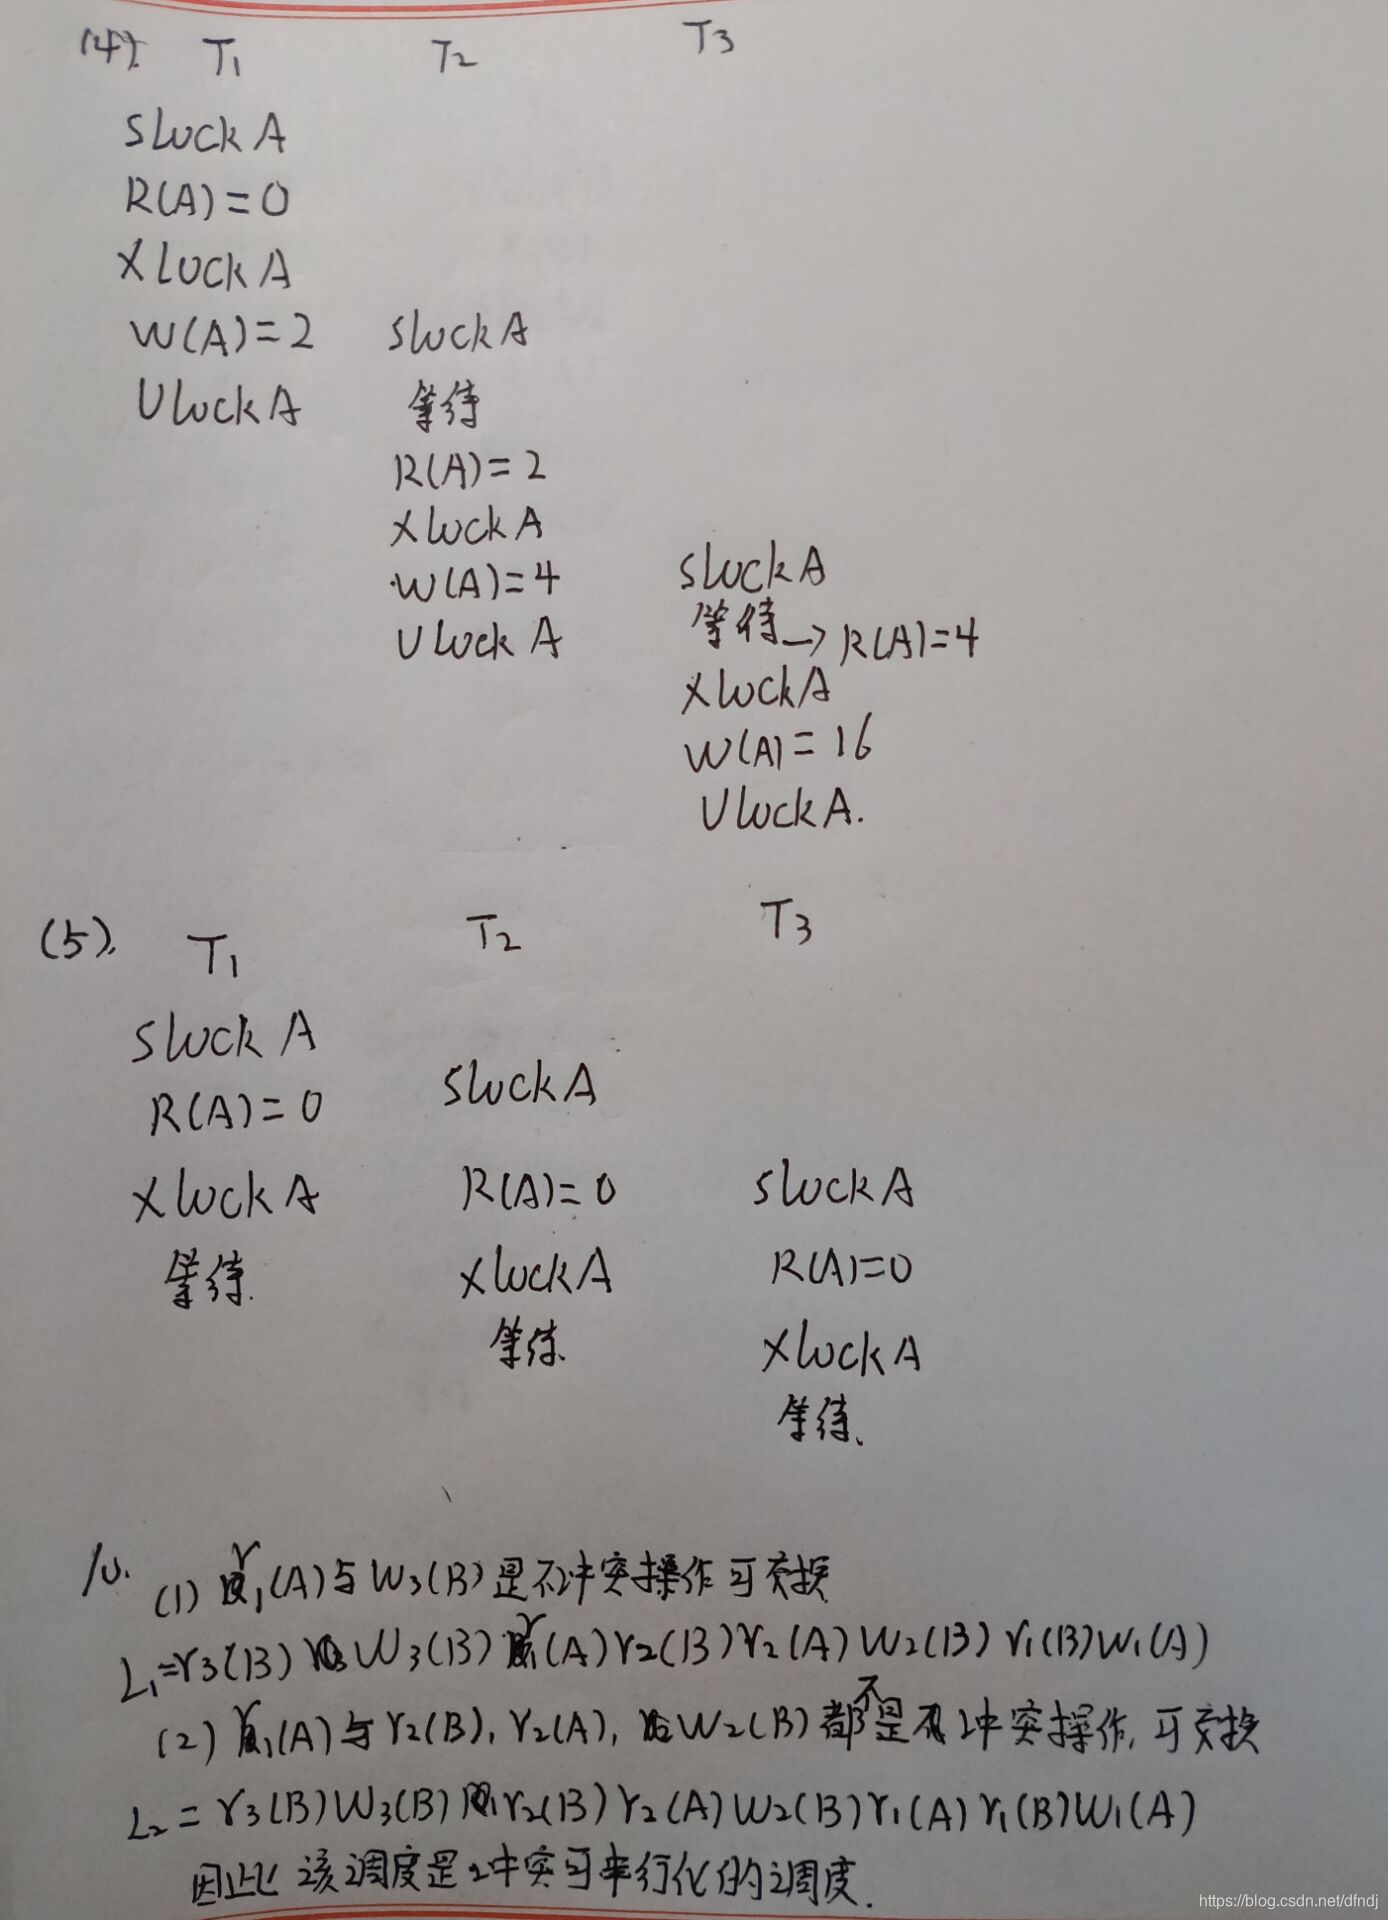 (4). T1 T2 T3
SlockA
R(A)=0
XLockA
W(A)=2 SlockA
UlockA 等待
R(A)=2
XlockA
W(A)=4 SlockA
UlockA 等待→R(A)=4
XlockA
W(A)=16
UlockA.
(5). T1 T2 T3
SlockA
SlockA
R(A)=0
XlockA R(A)=0 SlockA
等待. XlockA R(A)=0
等待. XlockA
等待.
10.
(1) r1(A)与W3(B)是不冲突操作可交换
L1=r3(B)W3(B)r1(A)r2(B)r2(A)W2(B)r1(B)W1(A)
(2) r1(A)与r2(B), r2(A), W2(B)都不是冲突操作,可交换
L2=r3(B)W3(B)r2(B)r2(A)W2(B)r1(A)r1(B)W1(A)
因此该调度是冲突可串行化的调度.
https://blog.csdn.net/dfndj